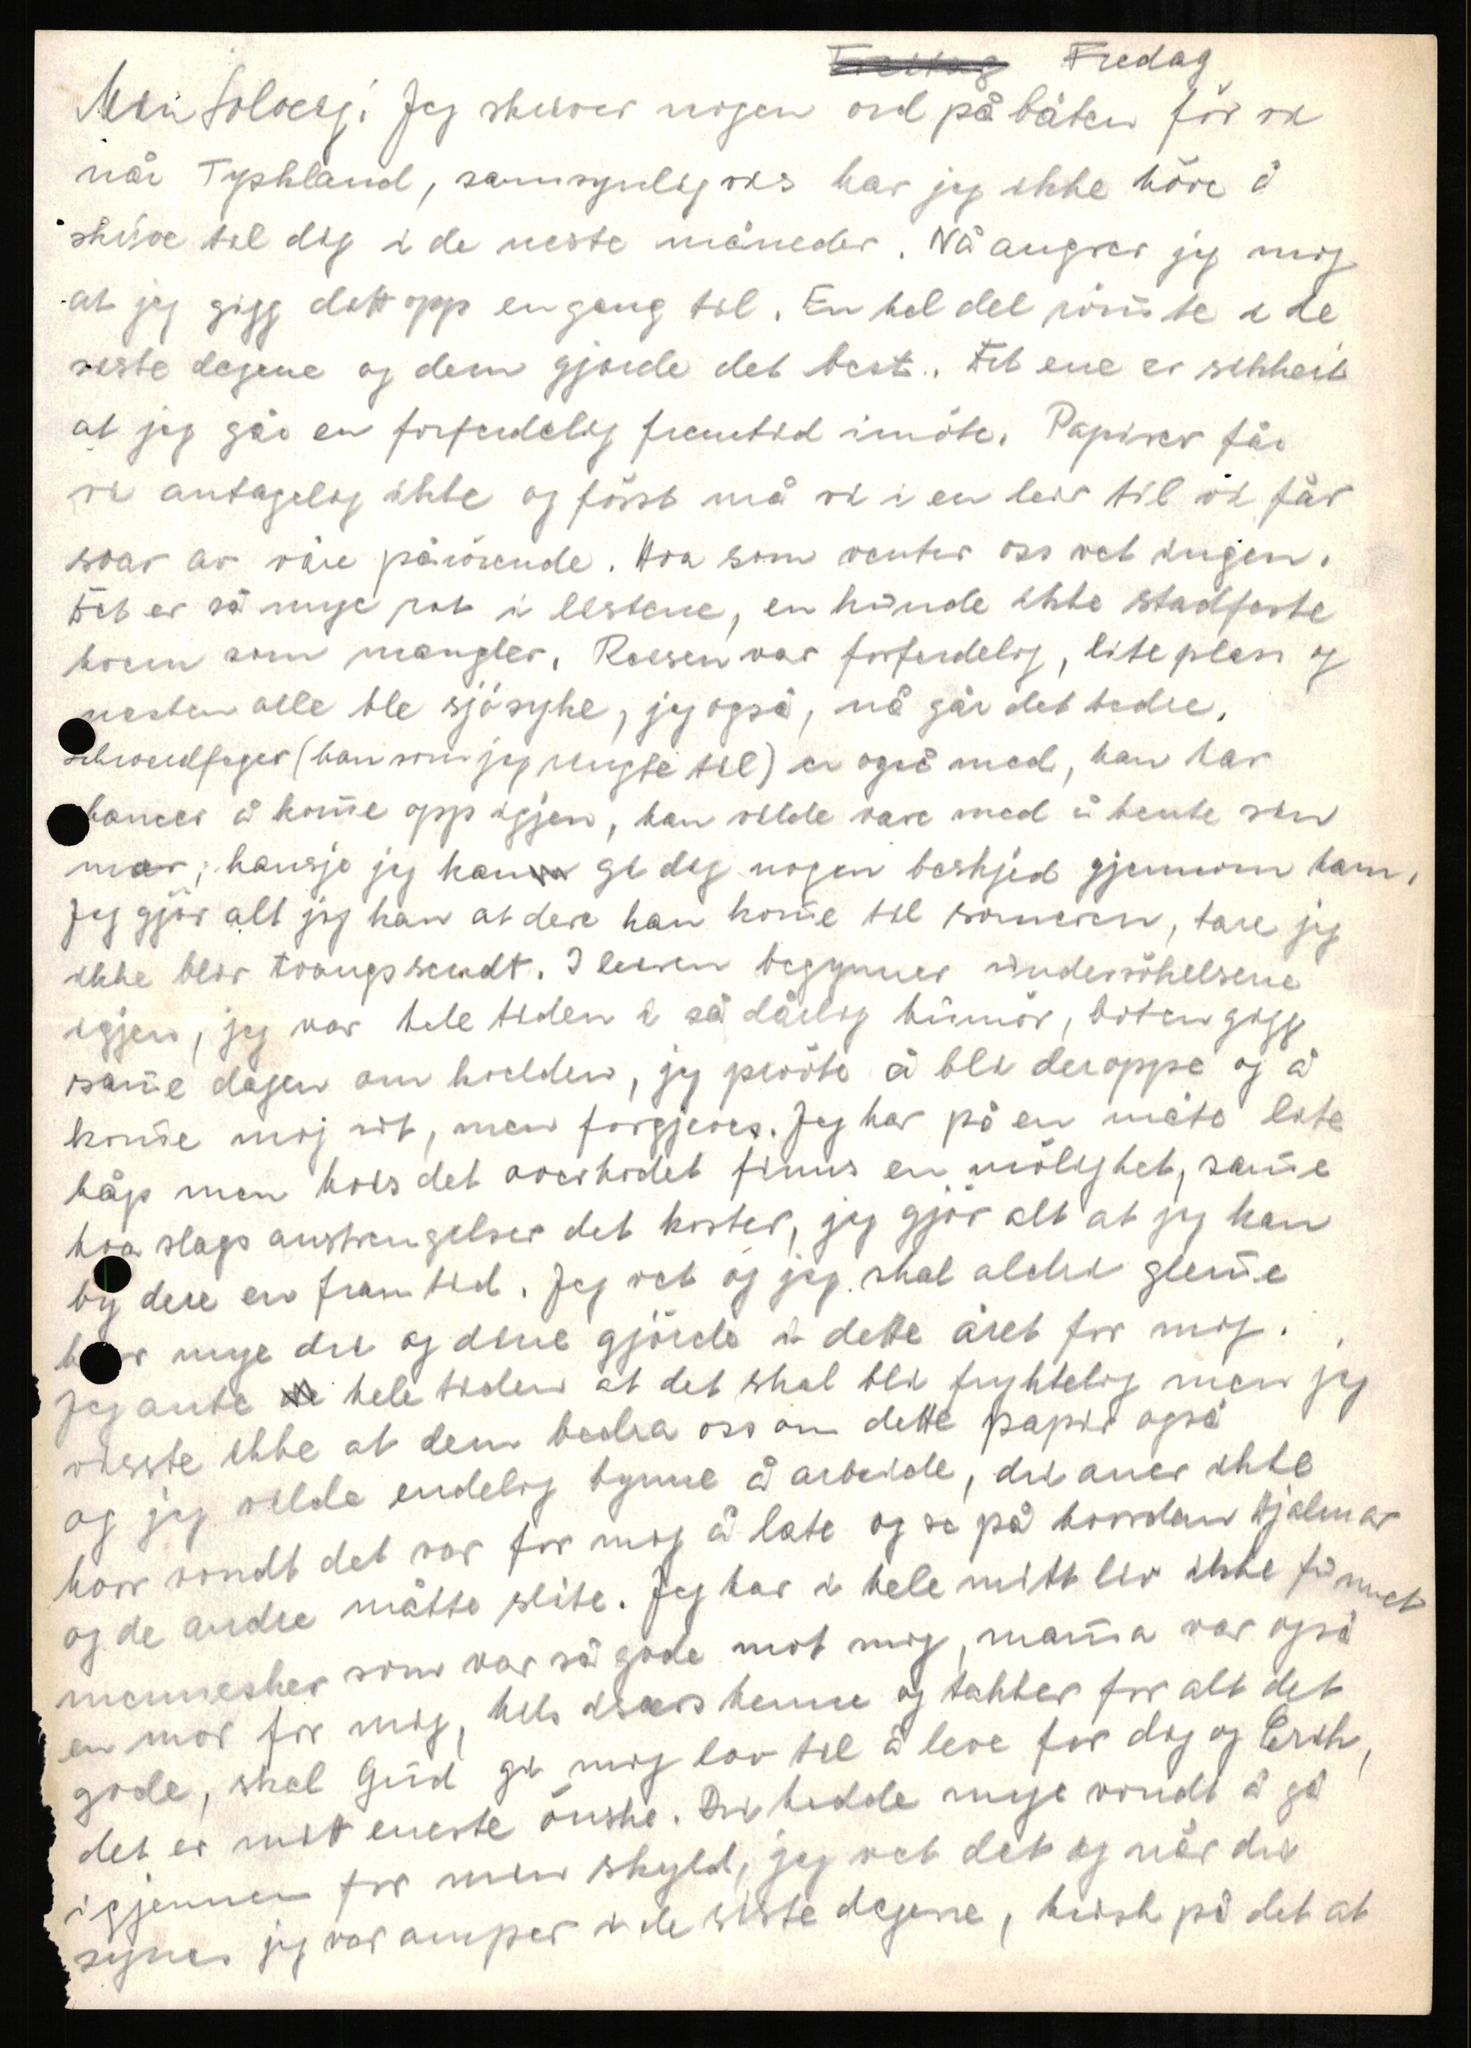 Freitag Fredag
Min Solveig! Jeg skriver nogen ord på båten för vi
når Tyskland, sansynligvis har jeg ikke höve å
skrive til dig i de neste måneder. Nå angrer jeg mig
at jeg gigg ditt opp engang til. En hel del römte i de
siste dagene og dem gjorde det best. Det ene er sikkert
at jeg går en forferdelig fremtid imöte. Papirer får
vi antagelig ikke og först må vi i en leir til vi får
svar av våre pårörende. Hva som venter oss vet ingen.
Det er så mye rot i listene, en kunde ikke stadfeste
hvem som mangler. Reisen var forferdelig, lite plass og
nesten alle ble sjösyke, jeg også, nå går det bedre.
Schwerdfeger (han som jeg ringte til) er også med, han har
chancer å kom̅e opp igjen, han vilde være med å hente sin
mor, kansje jeg kan gi dig nogen beskjed gjennom ham.
Jeg gjör alt jeg kan at dere kan kom̅e til som̅eren, bare jeg
ikke blir tvangssendt. I leiren begynner undersökelsene
igjen, jeg var hele tiden i så dårlig humör, båten gigg
sam̅e dagen om kvelden, jeg prövte å bli deroppe og å
kom̅e mig ut, men forgjeves. Jeg har på en måte lite
håp men hvis det overhodet finns en mölighet, sam̅e
hva slags anstrengelser det koster, jeg gjör alt at jeg kan
by dere en fram tid. Jeg vet og jeg skal aldri glem̅e
hvor mye du og dine gjörde i dette året for mig.
Jeg ante hele tiden at det skal bli fryktelig men jeg
visste ikke at dem bedra oss om dette papir også
og jeg vilde endelig byn̅e å arbeide, du aner ikke
hvor vondt det var for mig å late og se på hvordan Hjalmar
og de andre måtte slite. Jeg har i hele mitt liv ikke funnet
mennesker som var så gode mot mig, mam̅a var også
en mor for mig, hils især henne og takker for alt det
gode, skal Gud gi mig lov til å leve for dig og Erik,
det er mitt eneste önske. Du hadde mye vondt å gå
igjennem for min skyld, jeg vet det og når du
synes jeg var amper i de siste dagene, husk på det at